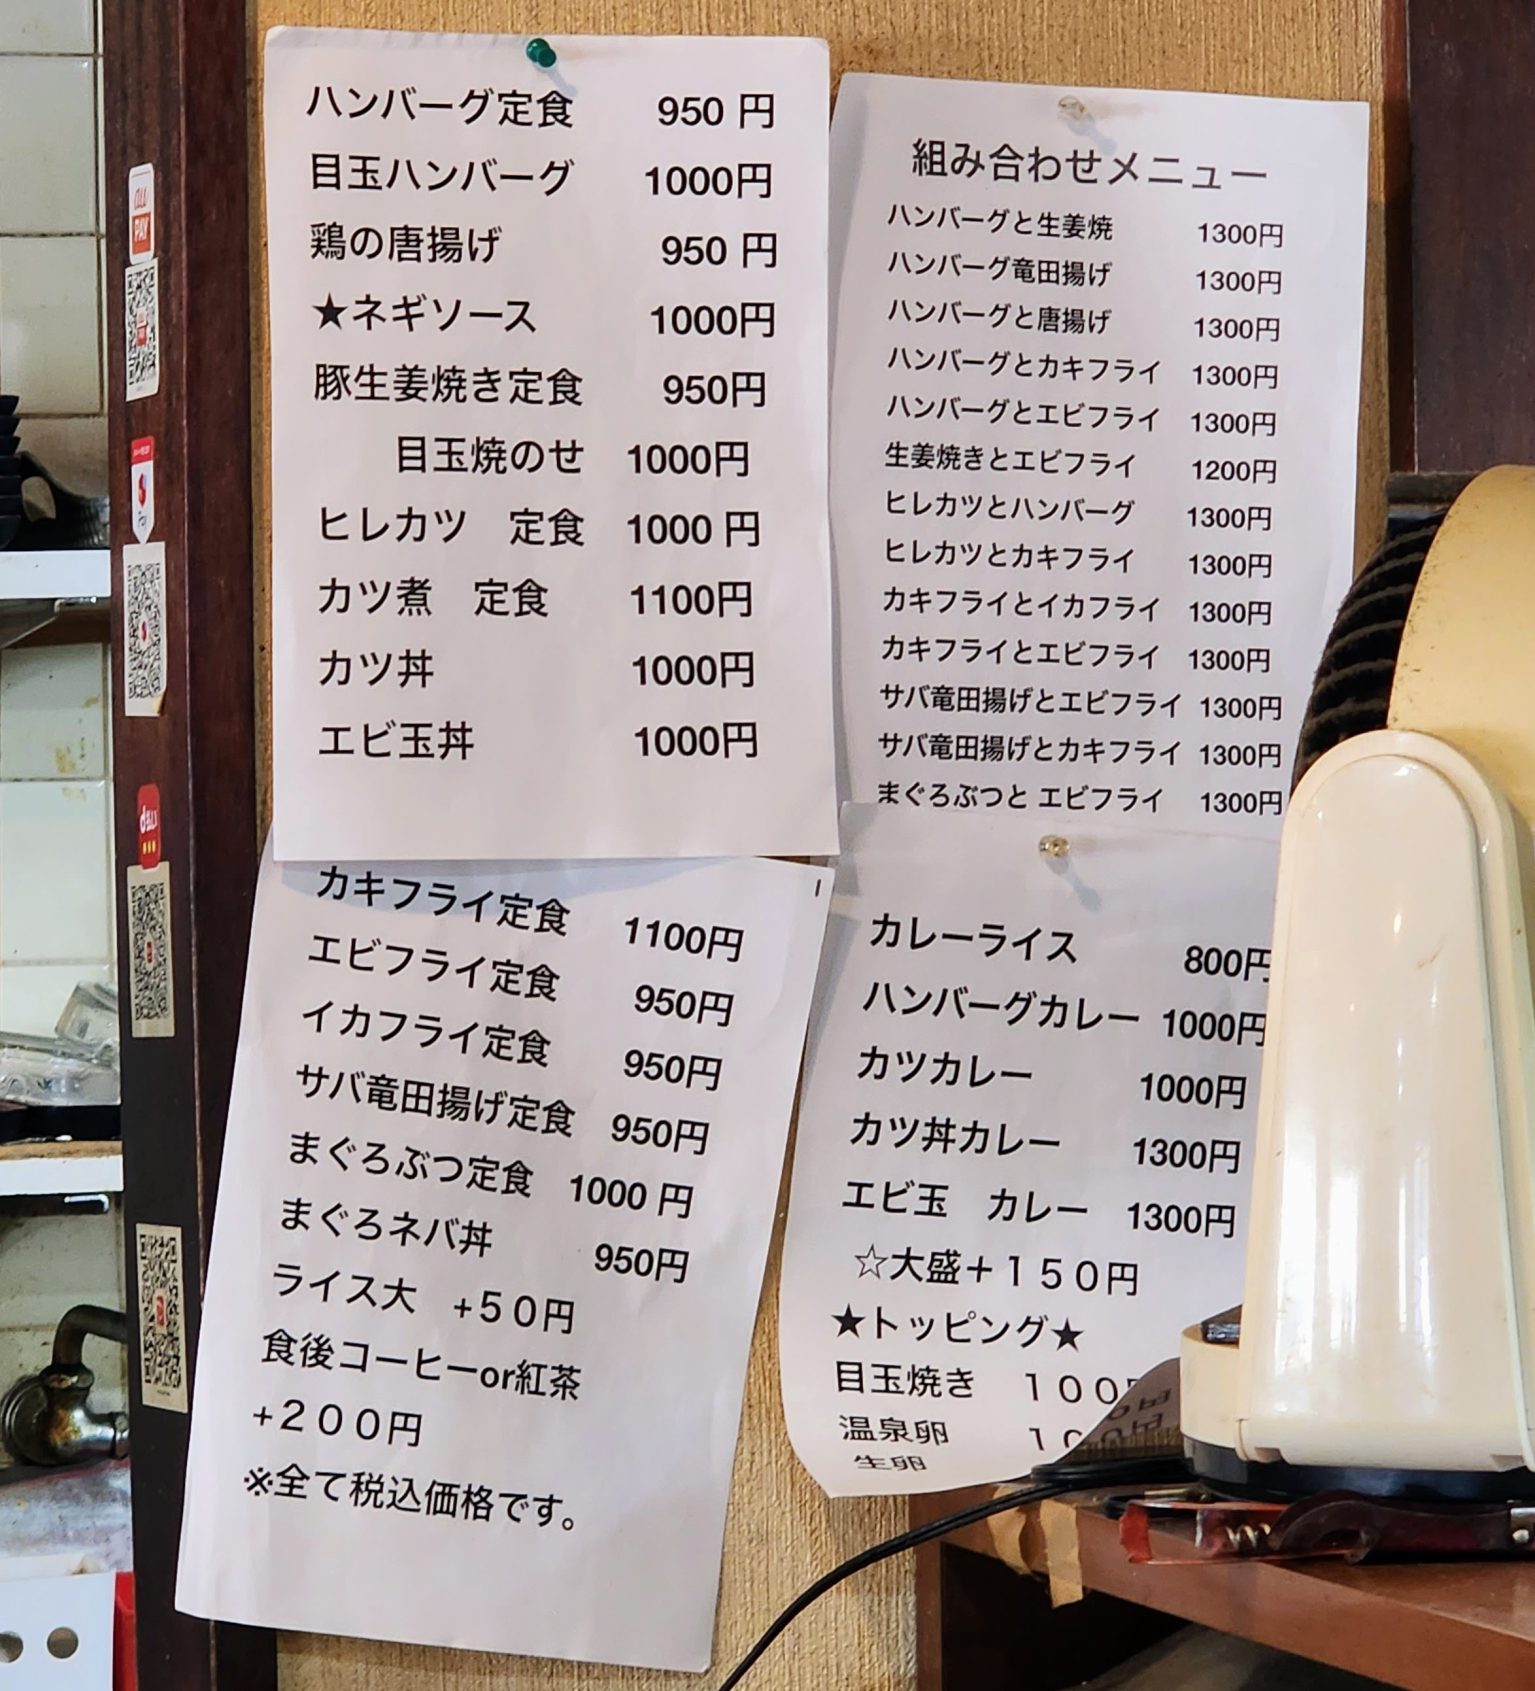 ハンバーグ定食 950 円
目玉ハンバーグ 1000円
鶏の唐揚げ 950 円
★ネギソース 1000円
豚生姜焼き定食 950円
目玉焼のせ 1000円
ヒレカツ 定食 1000 円
カツ煮 定食 1100円
カツ丼 1000円
エビ玉丼 1000円
カキフライ定食 1100円
エビフライ定食 950円
イカフライ定食 950円
サバ竜田揚げ定食 950円
まぐろぶつ定食 1000 円
まぐろネバ丼 950円
ライス大 +50円
食後コーヒーor紅茶
+200円
※全て税込価格です。
組み合わせメニュー
ハンバーグと生姜焼 1300円
ハンバーグ竜田揚げ 1300円
ハンバーグと唐揚げ 1300円
ハンバーグとカキフライ 1300円
ハンバーグとエビフライ 1300円
生姜焼きとエビフライ 1200円
ヒレカツとハンバーグ 1300円
ヒレカツとカキフライ 1300円
カキフライとイカフライ 1300円
カキフライとエビフライ 1300円
サバ竜田揚げとエビフライ 1300円
サバ竜田揚げとカキフライ 1300円
まぐろぶつと エビフライ 1300円
カレーライス 800円
ハンバーグカレー 1000円
カツカレー 1000円
カツ丼カレー 1300円
エビ玉 カレー 1300円
☆大盛+150円
★トッピング★
目玉焼き 100
温泉卵
生卵
au
PAY
Pay